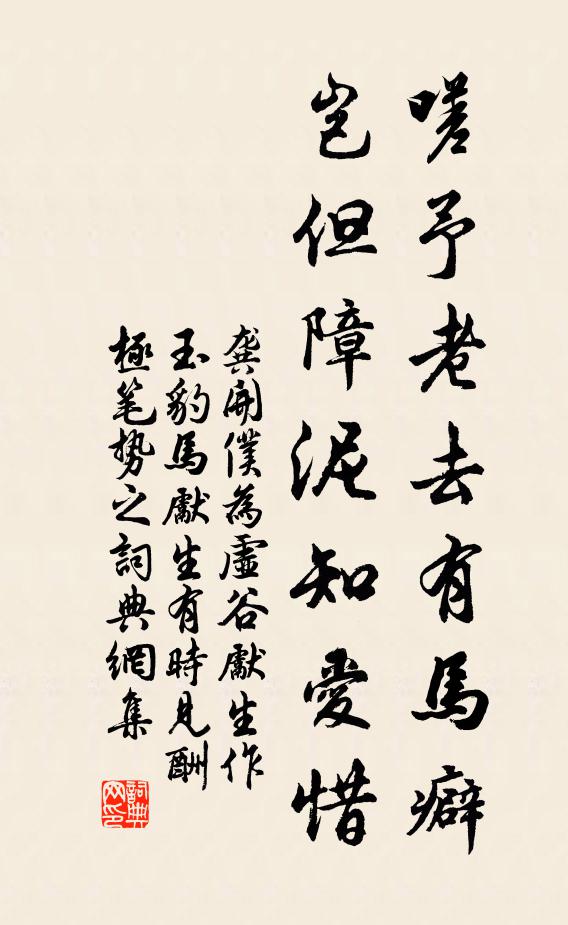 嗟予老去有馬癖
豈但障泥知愛惜
龚開僕為虛谷獻生作
玉豹馬獻生有時見酬
極笔势之詞典網集
詞典网印